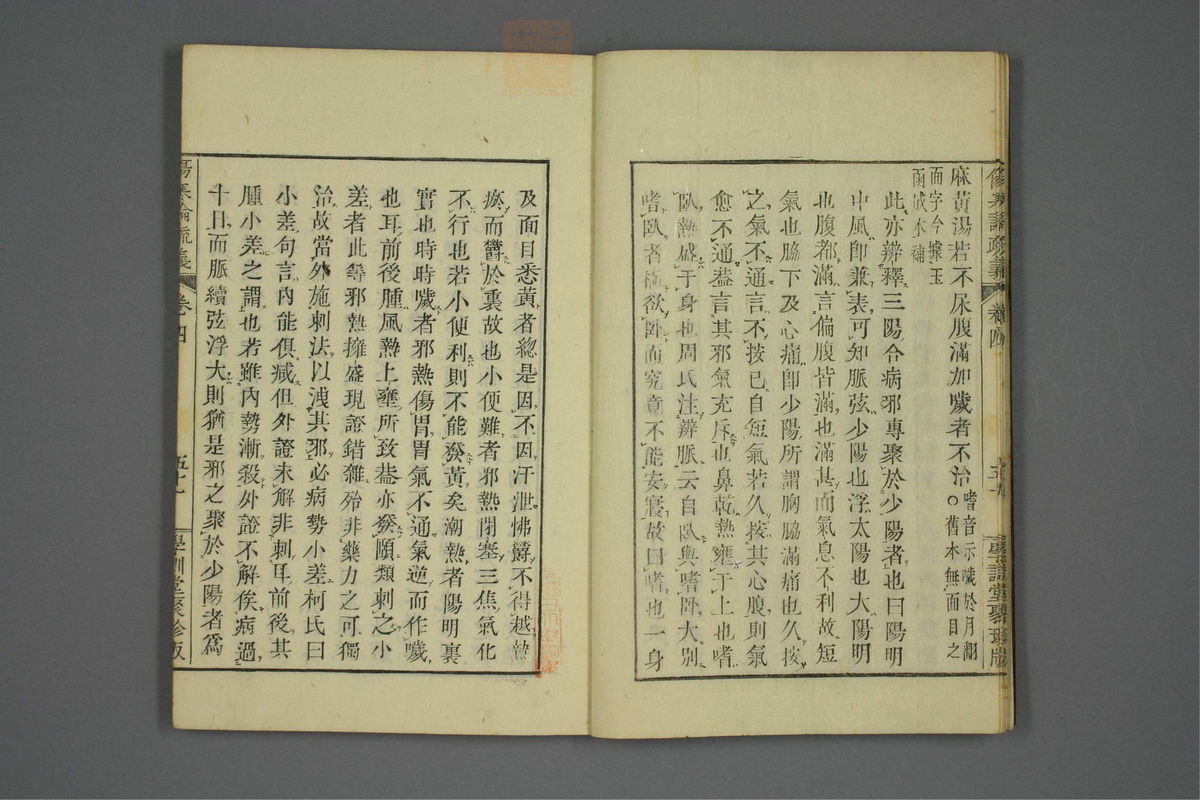 麻黃湯若不尿腹滿加噦者不治嗜音示噦於月翻○舊本無面目之
面字今據玉
函成本補
此亦辨釋三陽合病邪專聚於少陽者也曰陽明
中風卽兼表可知脈弦少陽也浮太陽也大陽明
也腹都滿言偏腹皆滿也滿甚而氣息不利故短
氣也脇下及心痛卽少陽所謂胸脇滿痛也久按
之氣不通言不按已自短氣若久按其心腹則氣
愈不通蓋言其邪氣充斥也鼻乾熱壅于上也嗜
臥熱盛于身也周氏注辨脈云自臥與嗜臥大別
嗜臥者欲臥而究竟不能安寢故曰嗜也一身
卷四
及面目悉黃者總是因不因汗泄怫鬱不得越熱
瘀而鬱於裏故也小便難者邪熱閉塞三焦氣化
不行也若小便利則不能發黃矣潮熱者陽明裏
實也時時噦者邪熱傷胃胃氣不通氣逆而作噦
也耳前後腫風熱上壅所致蓋亦發頤類刺之小
差者此等邪熱擁盛現證錯雜殆非藥力之可獨
治故當外施刺法以洩其邪必病勢小差柯氏曰
小差句言內能俱減但外證未解非刺耳前後其
腫小差之謂也若雖內勢漸殺外證不解俟病過
十日而脈續弦浮大則猶是邪之聚於少陽者爲
卷四
學訓堂聚珍版